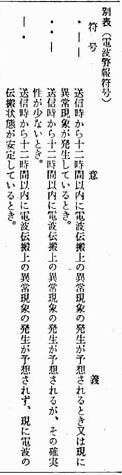 別表（電波警報符号）
符号 意義
・―― 送信時から十二時間以内に電波伝搬上の異常現象の発生が予想されるとき又は現に
異常現象が発生しているとき。
・・― 送信時から十二時間以内に電波伝搬上の異常現象の発生が予想されるが、その確実
性が少ないとき。
―・ 送信時から十二時間以内に電波伝搬上の異常現象の発生が予想されず、現に電波の
伝搬状態が安定しているとき。